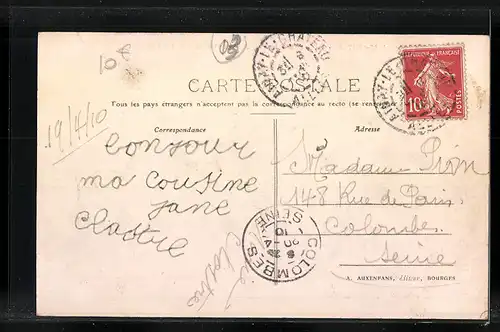 10€
03
AINAY-LE-CHATEAU
CARTE POSTALE
Tous les pays étrangers n'acceptent pas la correspondance au recto (se renseigner
RÉPUBLIQUE FRANÇAISE
10
POSTES
AINAY-LE
19/4/10
Correspondance
Adresse
bonjour
ma cousine
jane
Madame Pion
148 Rue de Paris
Colombes
Seine
COLOMBES
SEINE
20-4
10
A. AUXENFANS, éditeur, BOURGES